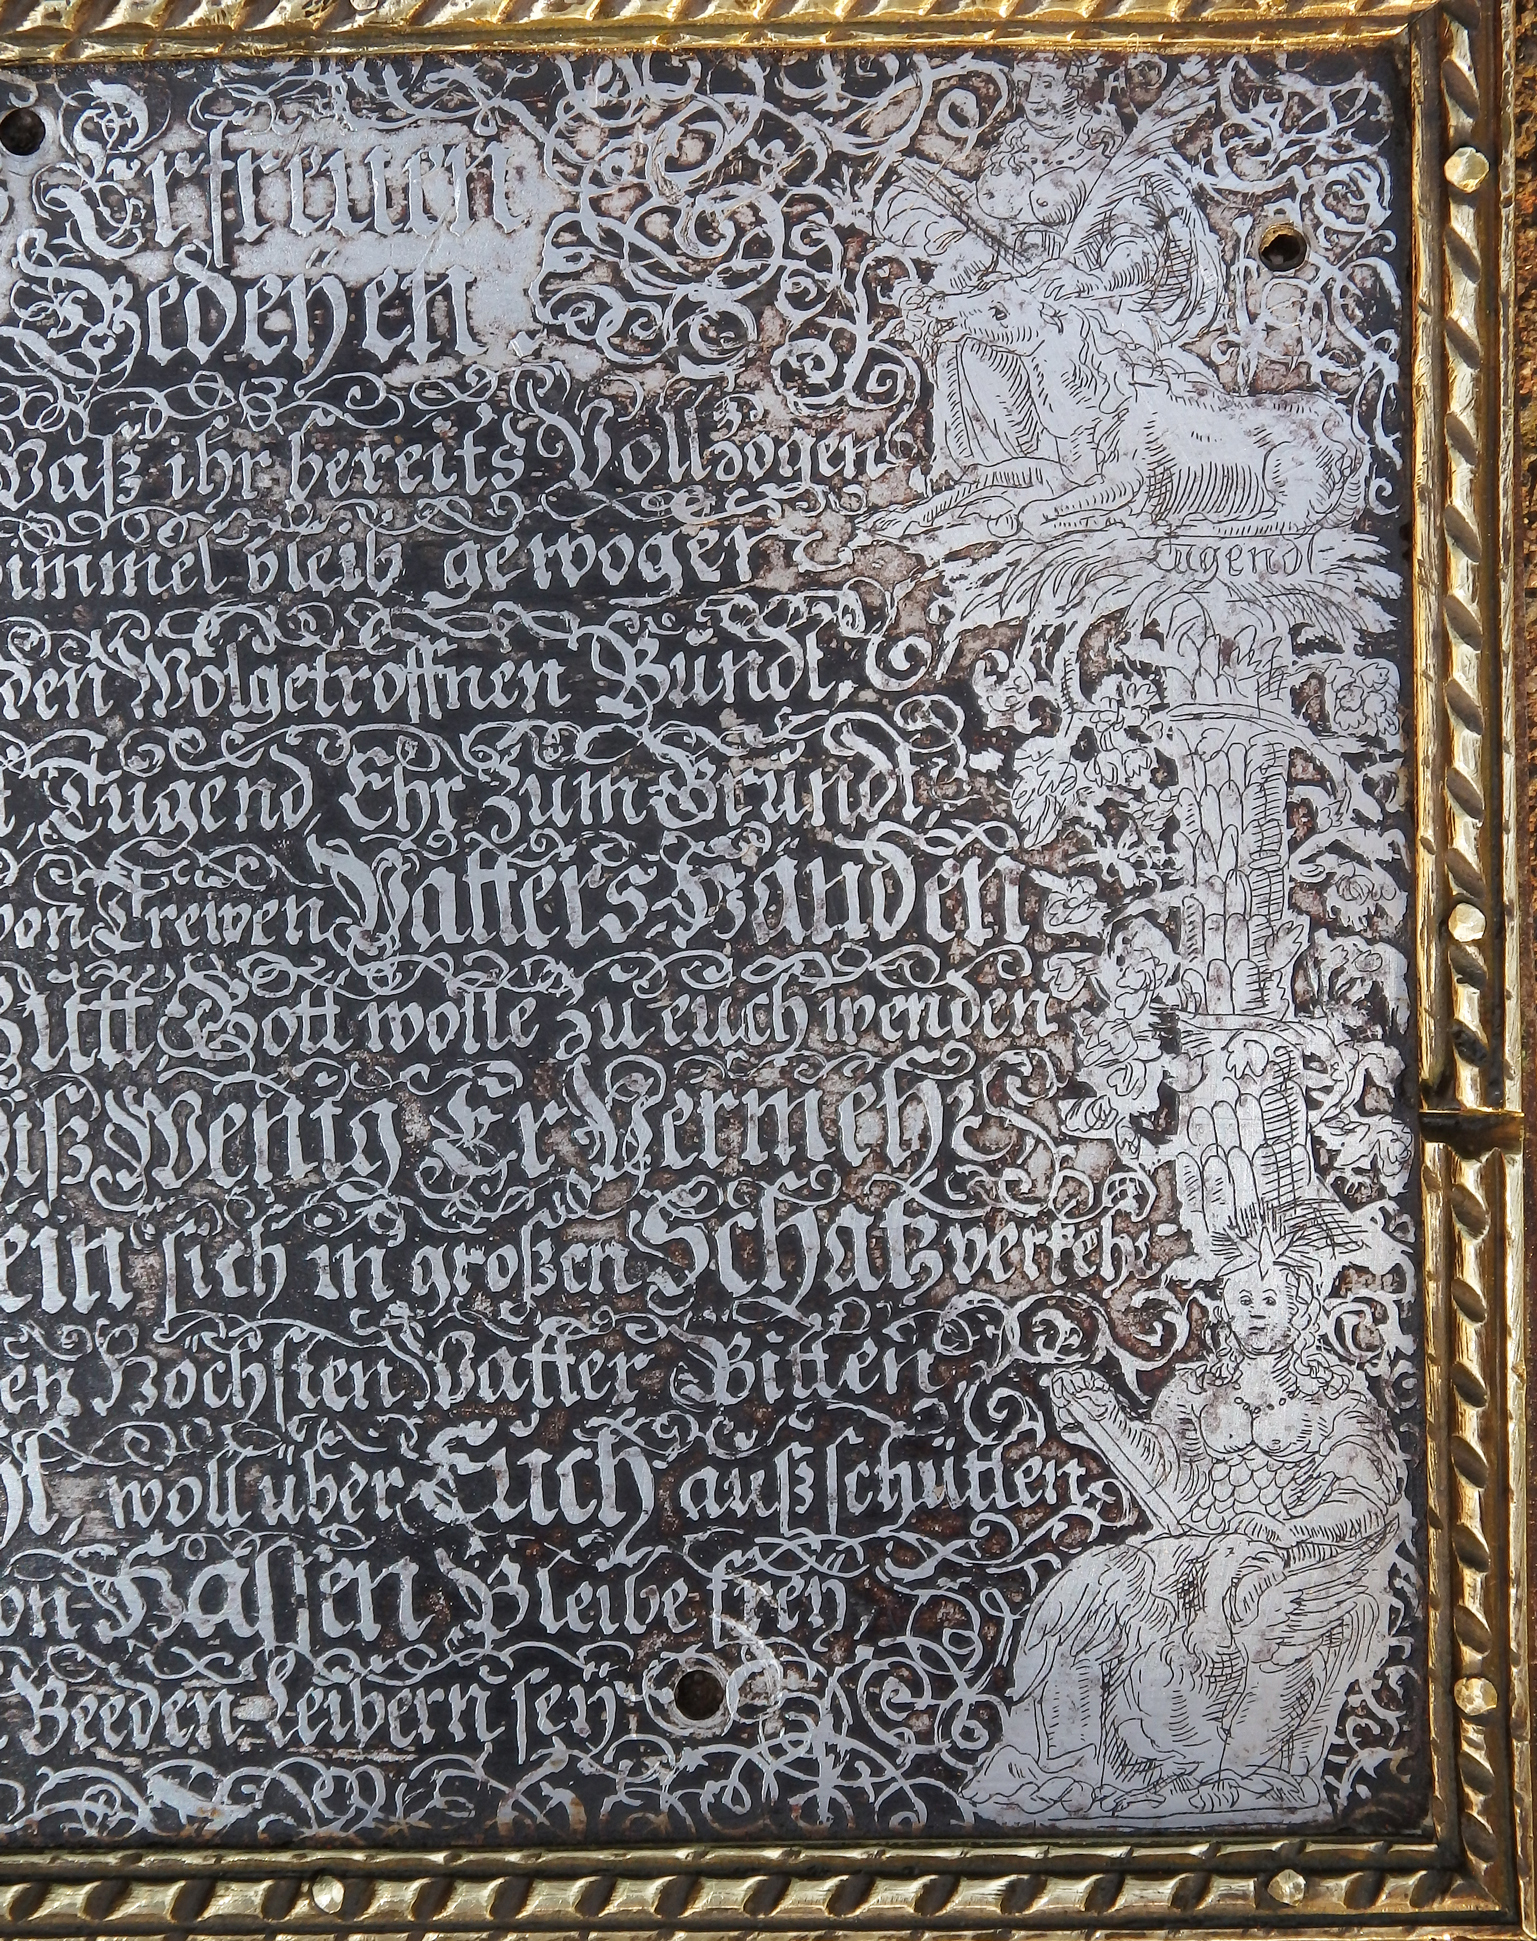 Erfreuen
Gedeÿen.
Waß ihr bereits Vollzogen
immel bleib gewogen
den Wolgetroffnen Bundt,
Tugend, Ehr zum Grundt,
von Trewen Vatters-Händen
Bitt Gott wolle zu euch wenden
iß Wenig Er Vermehr
ein sich in großen Schatz verkehr
en Höchsten Vatter Bitten
woll über Euch außschütten
on Hassen Bleibe freÿ
Beeden Leibern seÿ
Jugendt